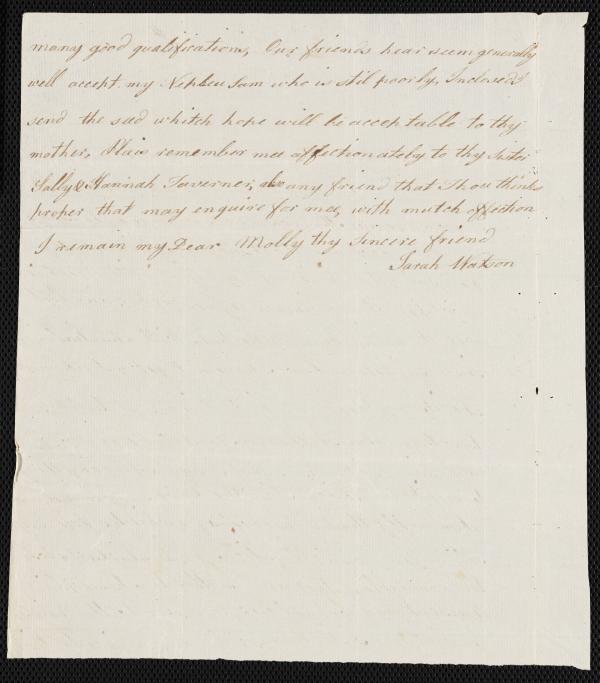 many good qualifications, Our friends hear seem generally
well accept my Nephew Sam who is stil poorly, Inclosed I
send the sed whitch hope will be acceptable to thy
mother, Plais remember mee affectionateby to thy Sister
Sally & Hannah Taverner, also any friend that Thou thinks
proper that may enquire for mee, with mutch affection
I remain my Dear Molly thy Sincere friend
Sarah Watson